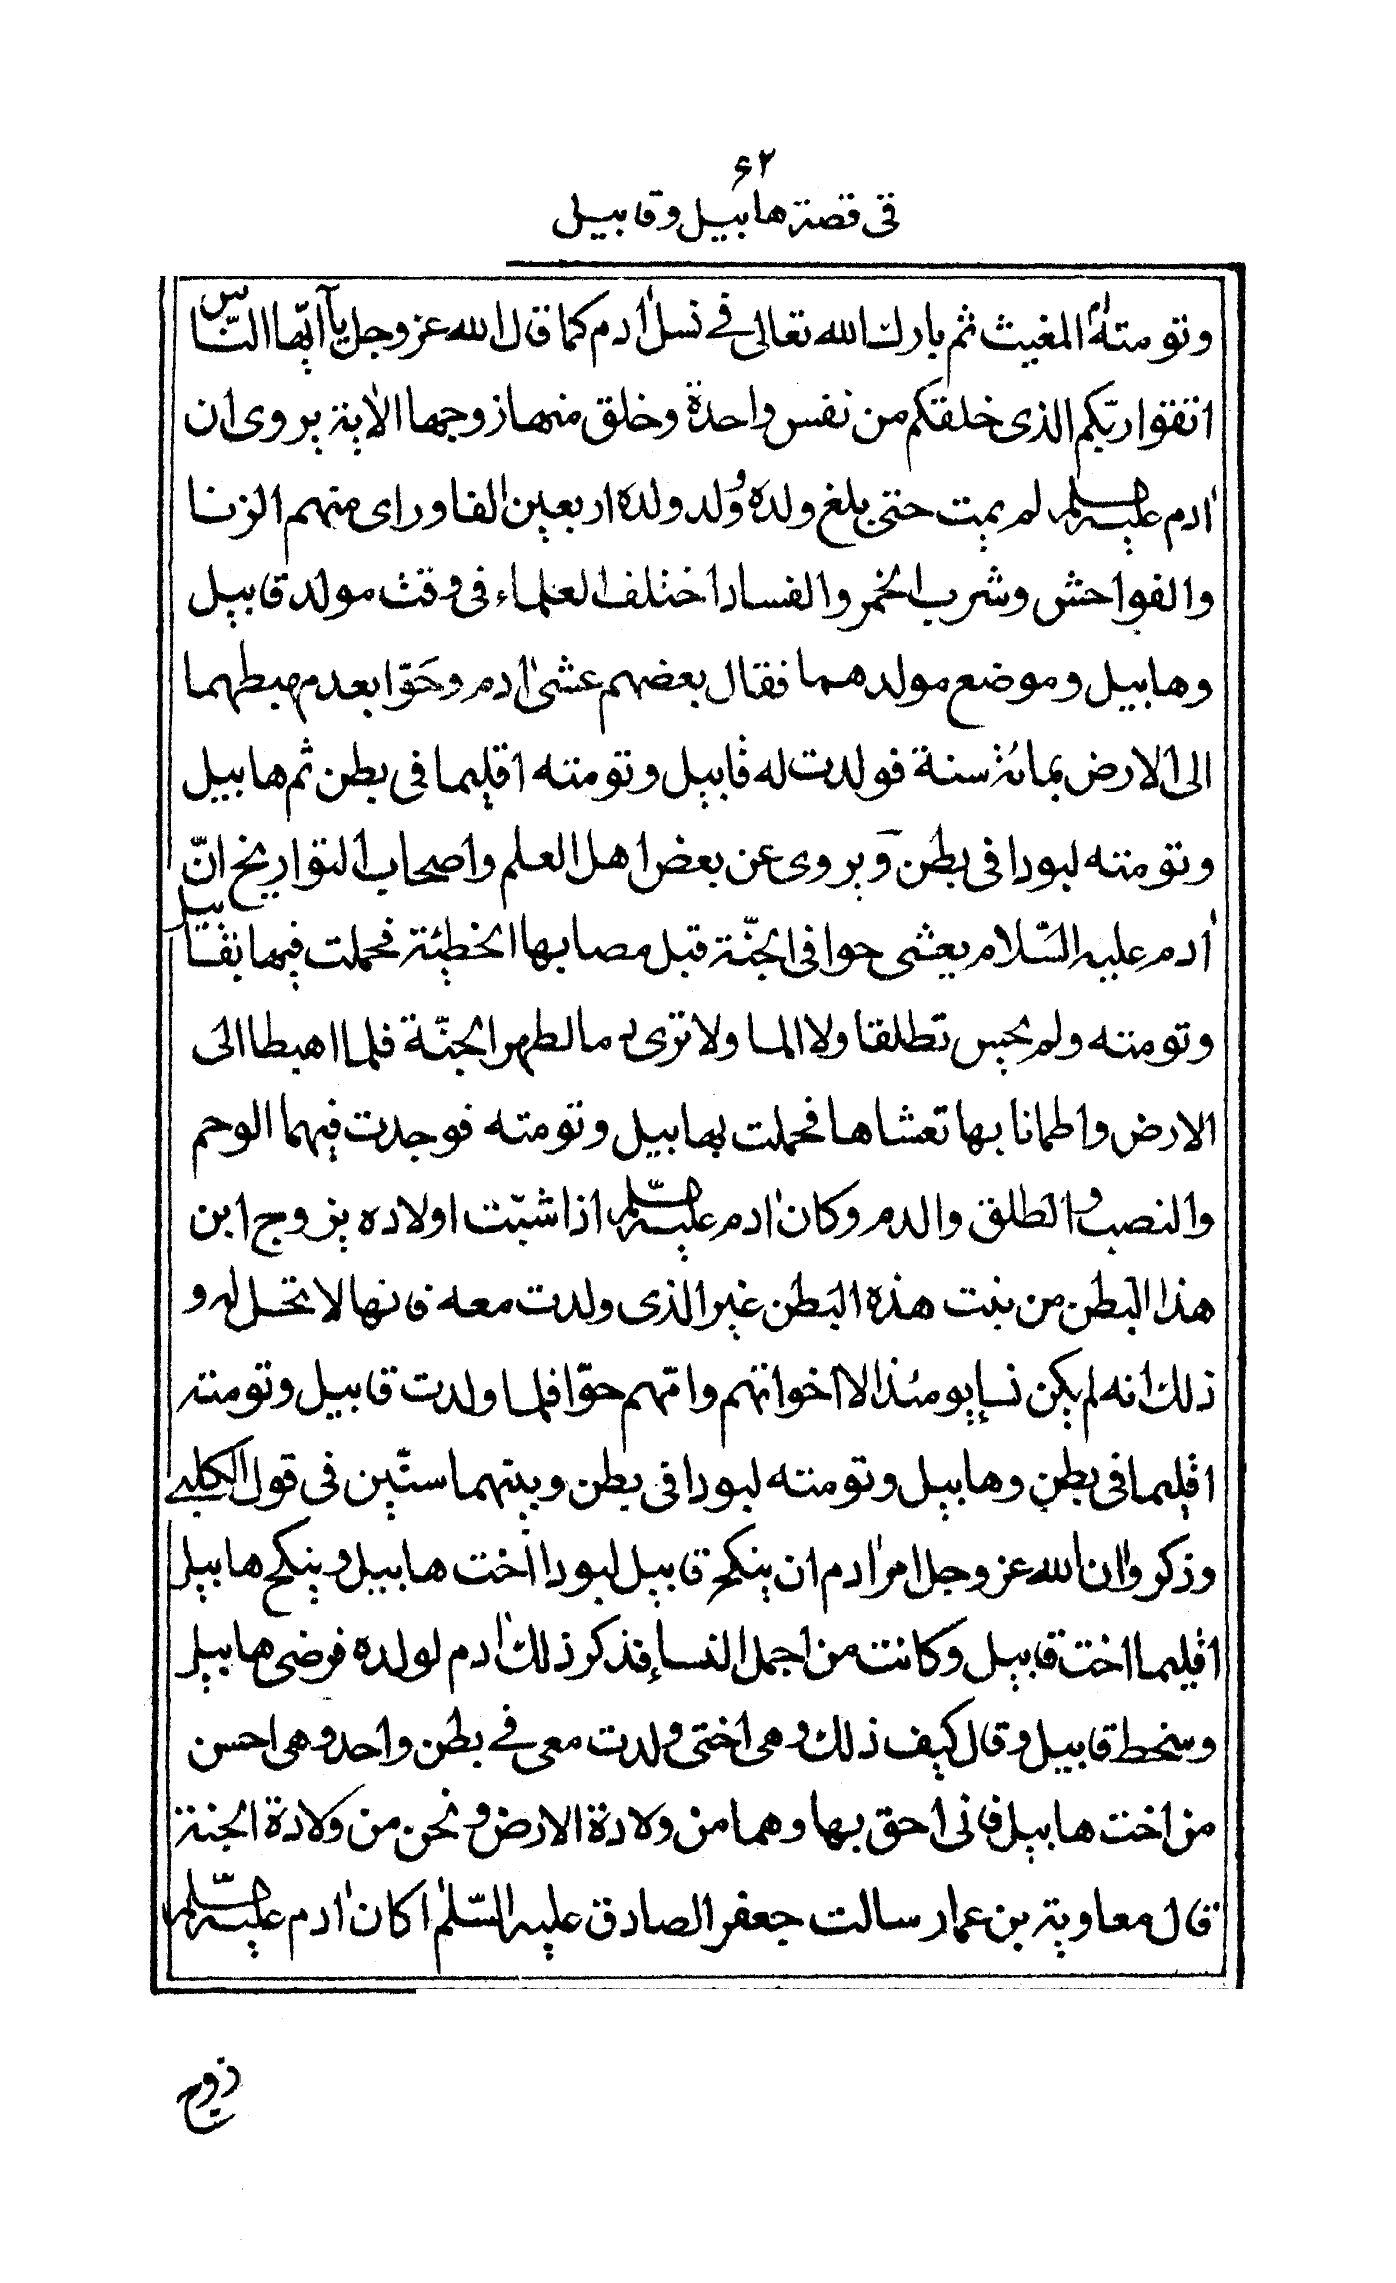 ۶۲
فی قصة هابیل وقابیل
وتومته المغیث ثم بارك الله تعالی فے نسل اٰدم كما قال الله عز وجل یآ ایّها النّاس
اتقوا ربّكم الذی خلقكم من نفس واحدة وخلق منها زوجها الاٰیة یروی ان
اٰدم علیه السلم لم یمت حتی بلغ ولده وُلد ولده اربعین الفا ورای منهم الزنا
والفواحش وشرب الخمر والفساد اختلف العلماء فی وقت مولد قابیل
وهابیل وموضع مولدهما فقال بعضهم عشی اٰدم وحَوّا بعد مهبطهما
الی الارض بمائة سنة فولدت له قابیل وتومته اقلیما فی بطن ثم هابیل
وتومته لبودا فی بطن وَیروی عن بعض اهل العلم واصحاب التواریخ انّ
اٰدم علیه السّلام یعشی حوا فی الجنّة قبل مصابها الخطیئة فحملت فیها بقابیل
وتومته ولم یحبس تطلقا ولا الما ولا تری دما لطهر الجنّة فلما اهبطا الی
الارض واطمانا بها تعشاها فحملت بهابیل وتومته فوجدت فیهما الوحم
والنصب والطلق والدم وكان اٰدم علیه السّلم اذا شبّت اولاده یزوج ابن
هذا البَطن من بنت هذه البَطن غیر الذی ولدت معه فانها لا تحل له و
ذلك انه لم یكن نسإ یومئذ الا اخواتهم وامّهم حوّا فلما ولدت قابیل وتومته
اقلیما فی بطن وهابیل وتومته لبودا فی بطن وبینهما ستّین فی قول الكلبے
وذكروا ان الله عز وجل امر اٰدم ان ینكح قابیل لبودا اخت هابیل وینكح هابیل
اقلیما اخت قابیل وكانت من اجمل النسإ فذكر ذلك اٰدم لولده فرضی هابیل
وسخط قابیل وقال كیف ذلك وهی اختی ولدت معی فے بطن واحد وهی احسن
من اخت هابیل فانی احق بها وهما من ولادة الارض ونحن من ولادة الجنة
قال معاویة بن عمار سالت جعفر الصادق علیه السّلم اكان اٰدم علیه السّلم
زوج